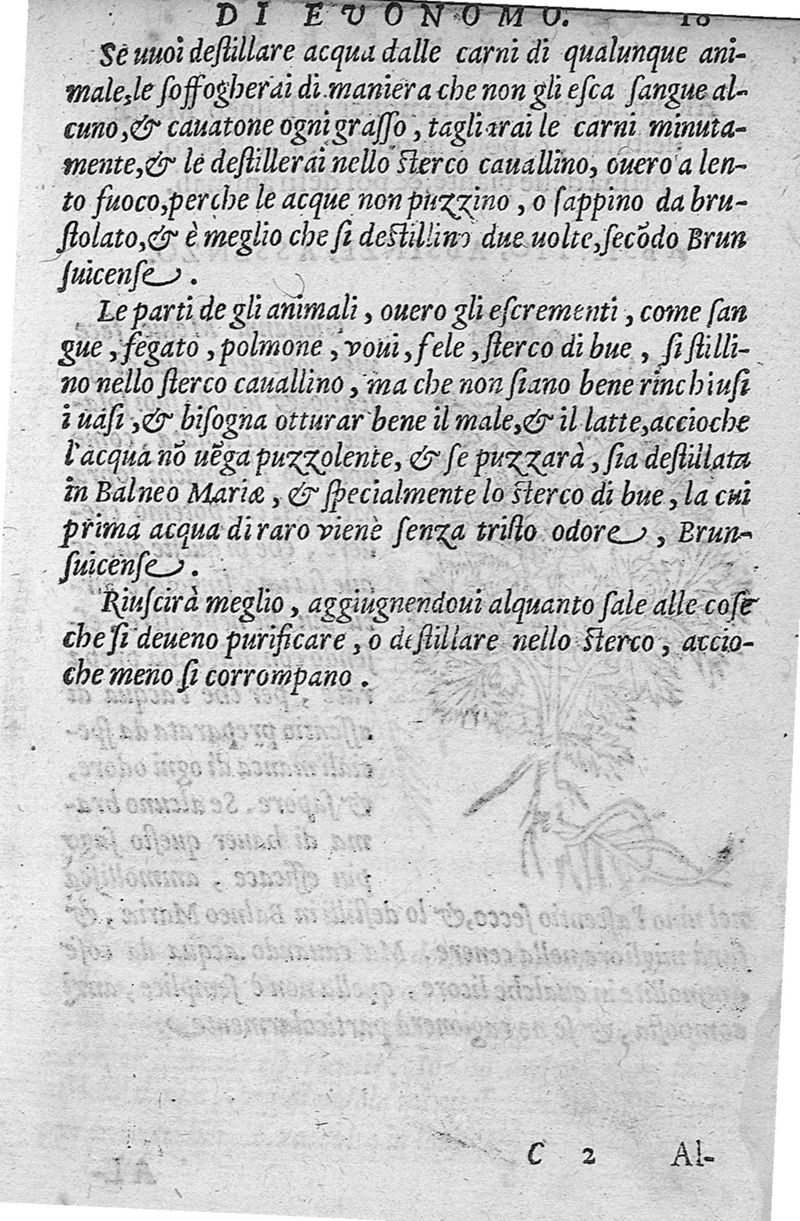 DI EVONOMO.
Se uuoi deſtillare acqua dalle carni di qualunque ani-
male, le ſoffogherai di maniera che non gli eſca ſangue al-
cuno, & cauatone ogni graſſo, tagliarai le carni minuta-
mente, & le deſtillerai nello ſterco cauallino, ouero a len-
to fuoco, perche le acque non puzzino, o ſappino da bru-
ſtolato, & è meglio che ſi deſtillino due uolte, ſecõdo Brun
ſuicenſe.
Le parti de gli animali, ouero gli eſcrementi, come ſan
gue, fegato, polmone, voui, fele, ſterco di bue, ſi ſtilli-
no nello ſterco cauallino, ma che non ſiano bene rinchiuſi
i uaſi, & biſogna otturar bene il male, & il latte, accioche
l'acqua nõ uẽga puzzolente, & ſe puzzarà, ſia deſtillata
in Balneo Mariæ, & ſpecialmente lo ſterco di bue, la cui
prima acqua di raro viene ſenza triſto odore, Brun-
ſuicenſe.
Riuſcirà meglio, aggiugnendoui alquanto ſale alle coſe
che ſi deueno purificare, o deſtillare nello ſterco, accio-
che meno ſi corrompano.
C 2 Al-